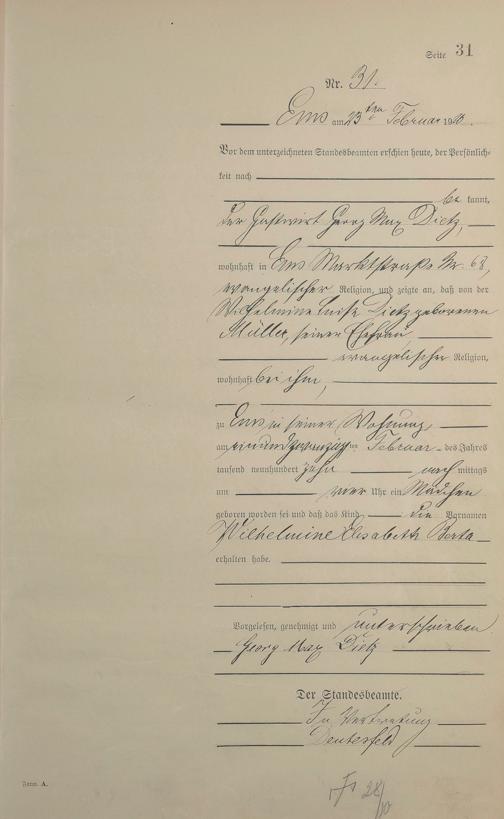 Seite 31
Nr. 31.
Ems am 23ten Februar 1910.
Vor dem unterzeichneten Standesbeamten erschien heute, der Persönlich-
keit nach
be kannt,
der Gastwirt Georg Max Dietz,
wohnhaft in Ems Marktstraße Nr. 68,
evangelischer Religion, und zeigte an, daß von der
Wilhelmine Luise Dietz geborenen
Müller, seiner Ehefrau,
evangelischer Religion,
wohnhaft bei ihm,
zu Ems in seiner Wohnung
am einundzwanzigsten Februar des Jahres
tausend neunhundert zehn nach mittags
um Uhr ein Mädchen
geboren worden sei und daß das Kind die Vornamen
Wilhelmine Elisabeth Berta
erhalten habe.
Vorgelesen, genehmigt und unterschrieben
Georg Max Dietz
Der Standesbeamte.
In Vertretung
Form. A.
28/10